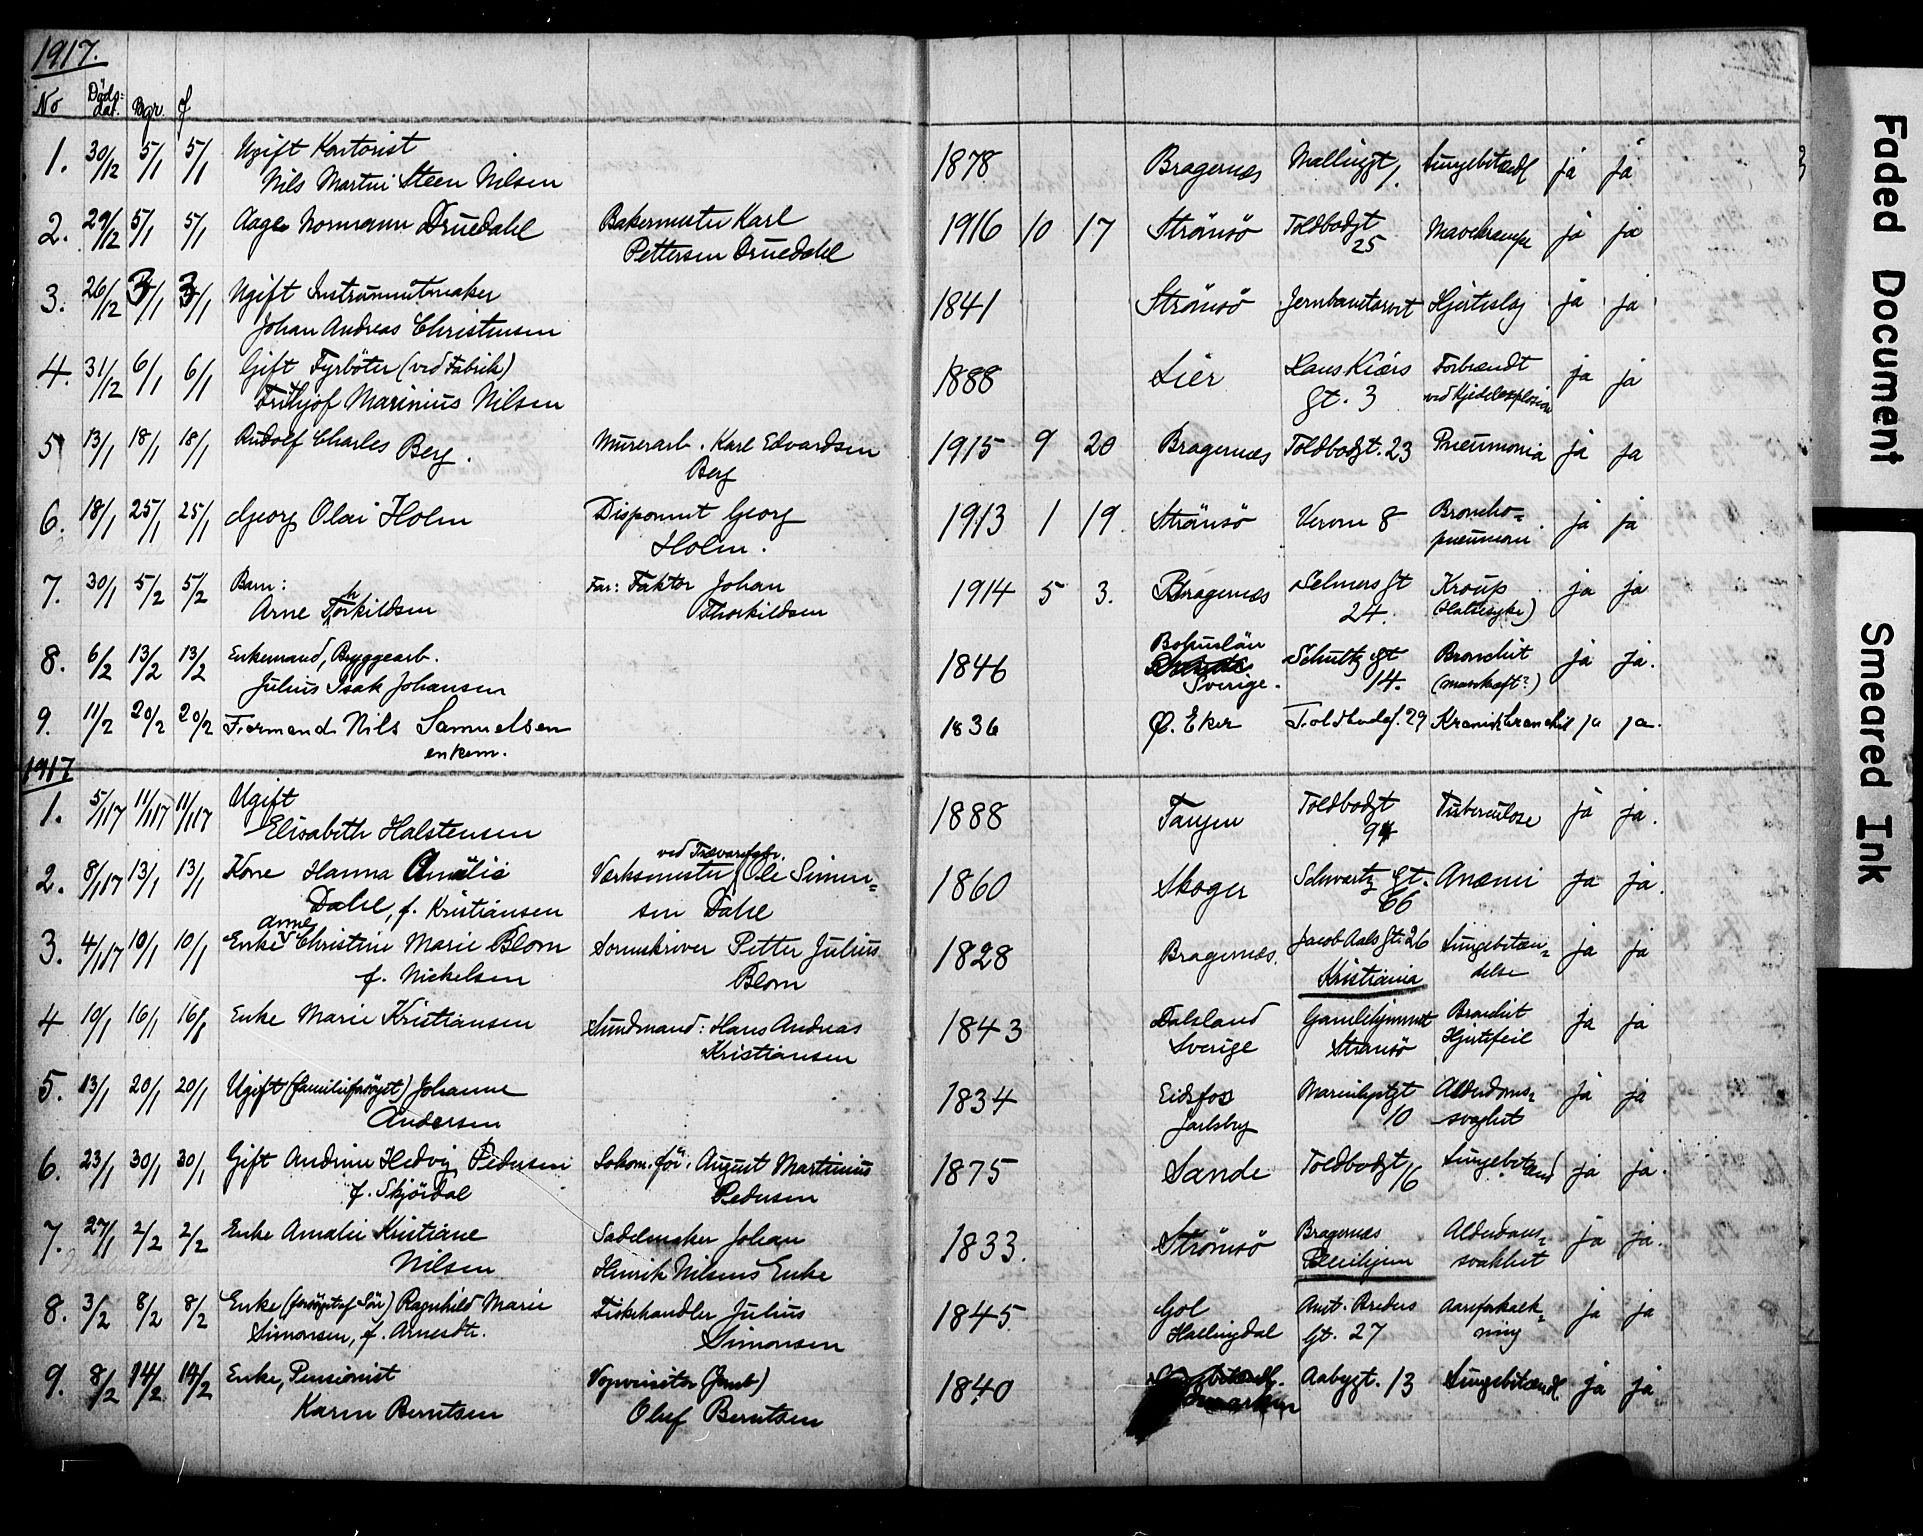 1917.
No Döds-dat. Bgr. f.
1. 30/12 5/1 5/1 Ugift Kontorist 1878 Bragernæs Mallinggt 1. Lungebetændl ja ja
Nils Martin Steen Nilsen
2. 29/12 5/1 5/1 Aage Normann Druedahl Bakermester Karl 1916 10 17 Strömsö Toldbodgt 25 Mavekrampe ja ja
Pettersen Druedahl
3. 26/12 3/1 3/1 Ugift Instrumentmaker 1841 Strömsö Jernbanetorvet Hjerteslag ja ja
Johan Andreas Christensen
4. 31/12 6/1 6/1 Gift Fyrböter (ved Fabrik) 1888 Lier Hans Kiærs Forbrændt ja ja
Frithjof Marinius Nilsen gt. 3 ved Kjedelexplosion
5 13/1 18/1 18/1 Rudolf Charles Berg. Murerarb. Karl Edvardsen 1915 9 20 Bragernæs Toldbodgt. 23 Pneumonia ja ja
Berg
6. 18/1 25/1 25/1 Georg Olai Holm Disponent Georg 1913 1 19. Strömsö Verven 8 Broncho- ja ja
Holm. pneumoni
7. 30/1 5/2 5/2 Barn: Far: Faktor Johan 1914 5 3. Bragernæs Selmersgt Kroup ja ja
Arne Thorkildsen Thorkildsen 24. (Halssyke)
8. 6/2 13/2 13/2 Enkemand, Bryggearb. 1846 Bohuslän Schultz gt Bronchit ja ja.
Julius Isak Johansen Sverige. 14. (marskaft?)
9. 11/2 20/2 20/2 Formand Nils Samuelsen 1836 Ø. Eker Toldbodg. 29 Kroniskbronchit ja ja.
enkem.
1917
1. 5/1 17 11/1 17 11/1 17 Ugift 1888 Tangen Toldbodgt Tuberculose ja ja.
Elisabeth Halstensen 94
2. 8/1 17 13/1 13/1 Kone Hanna Amalie ved Trævarefabr. Værksmester Ole Simen- 1860 Skoger Schwartz gt. Anæmi ja ja.
Dahl, f. Kristiansen sen Dahl 66
3. 4/1 17 10/1 10/1 Enke Anne Christine Marie Blom Sorenskriver Petter Julius 1828 Bragernæs. Jacob Aals gt. 26 Lungebetæn- ja ja
f. Nickelsen Blom Kristiania delse
4 10/1 16/1 16/1 Enke Marie Kristiansen Sundmand: Hans Andreas 1843 Dalsland Gamlehjemmet Bronchit ja ja
Kristiansen Sverige Strömsö Hjertefeil
5. 13/1 20/1 20/1 Ugift (familieforsörget) Johanne 1834 Eidsfos Marienlystgt Alderdoms- ja ja
Andersen Jarlsberg 10 svaghet
6. 23/1 30/1 30/1 Gift Andrine Hedvig Pedersen Lokom. för. August Martinius 1875 Sande Toldbodgt 16 Lungebetænd ja ja.
f. Skjördal Pedersen
7. 27/1 2/2 2/2 Enke Amalie Kristiane Sadelmaker Johan 1833. Strömsö Bragernæs Alderdoms- ja ja.
Nilsen Henrik Nilsens Enke Pleiehjem svakhet
8. 3/2 8/2 8/2 Enke (forsörget af Sön) Ragnhild Marie Fiskehandler Julius 1845 Gol Amt. Breders Aareforkalk- ja ja
Simonsen, f. Arnesdtr. Simonsen Hallingdal gt. 27 ning
9. 8/2 14/2 14/2 Enke, Pensionist Vognvisitør (Jernb) 1840 Aabygt. 13 Lungebetændl. ja ja
Karen Berntsen Oluf Berntsen
Faded Document
Smeared Ink